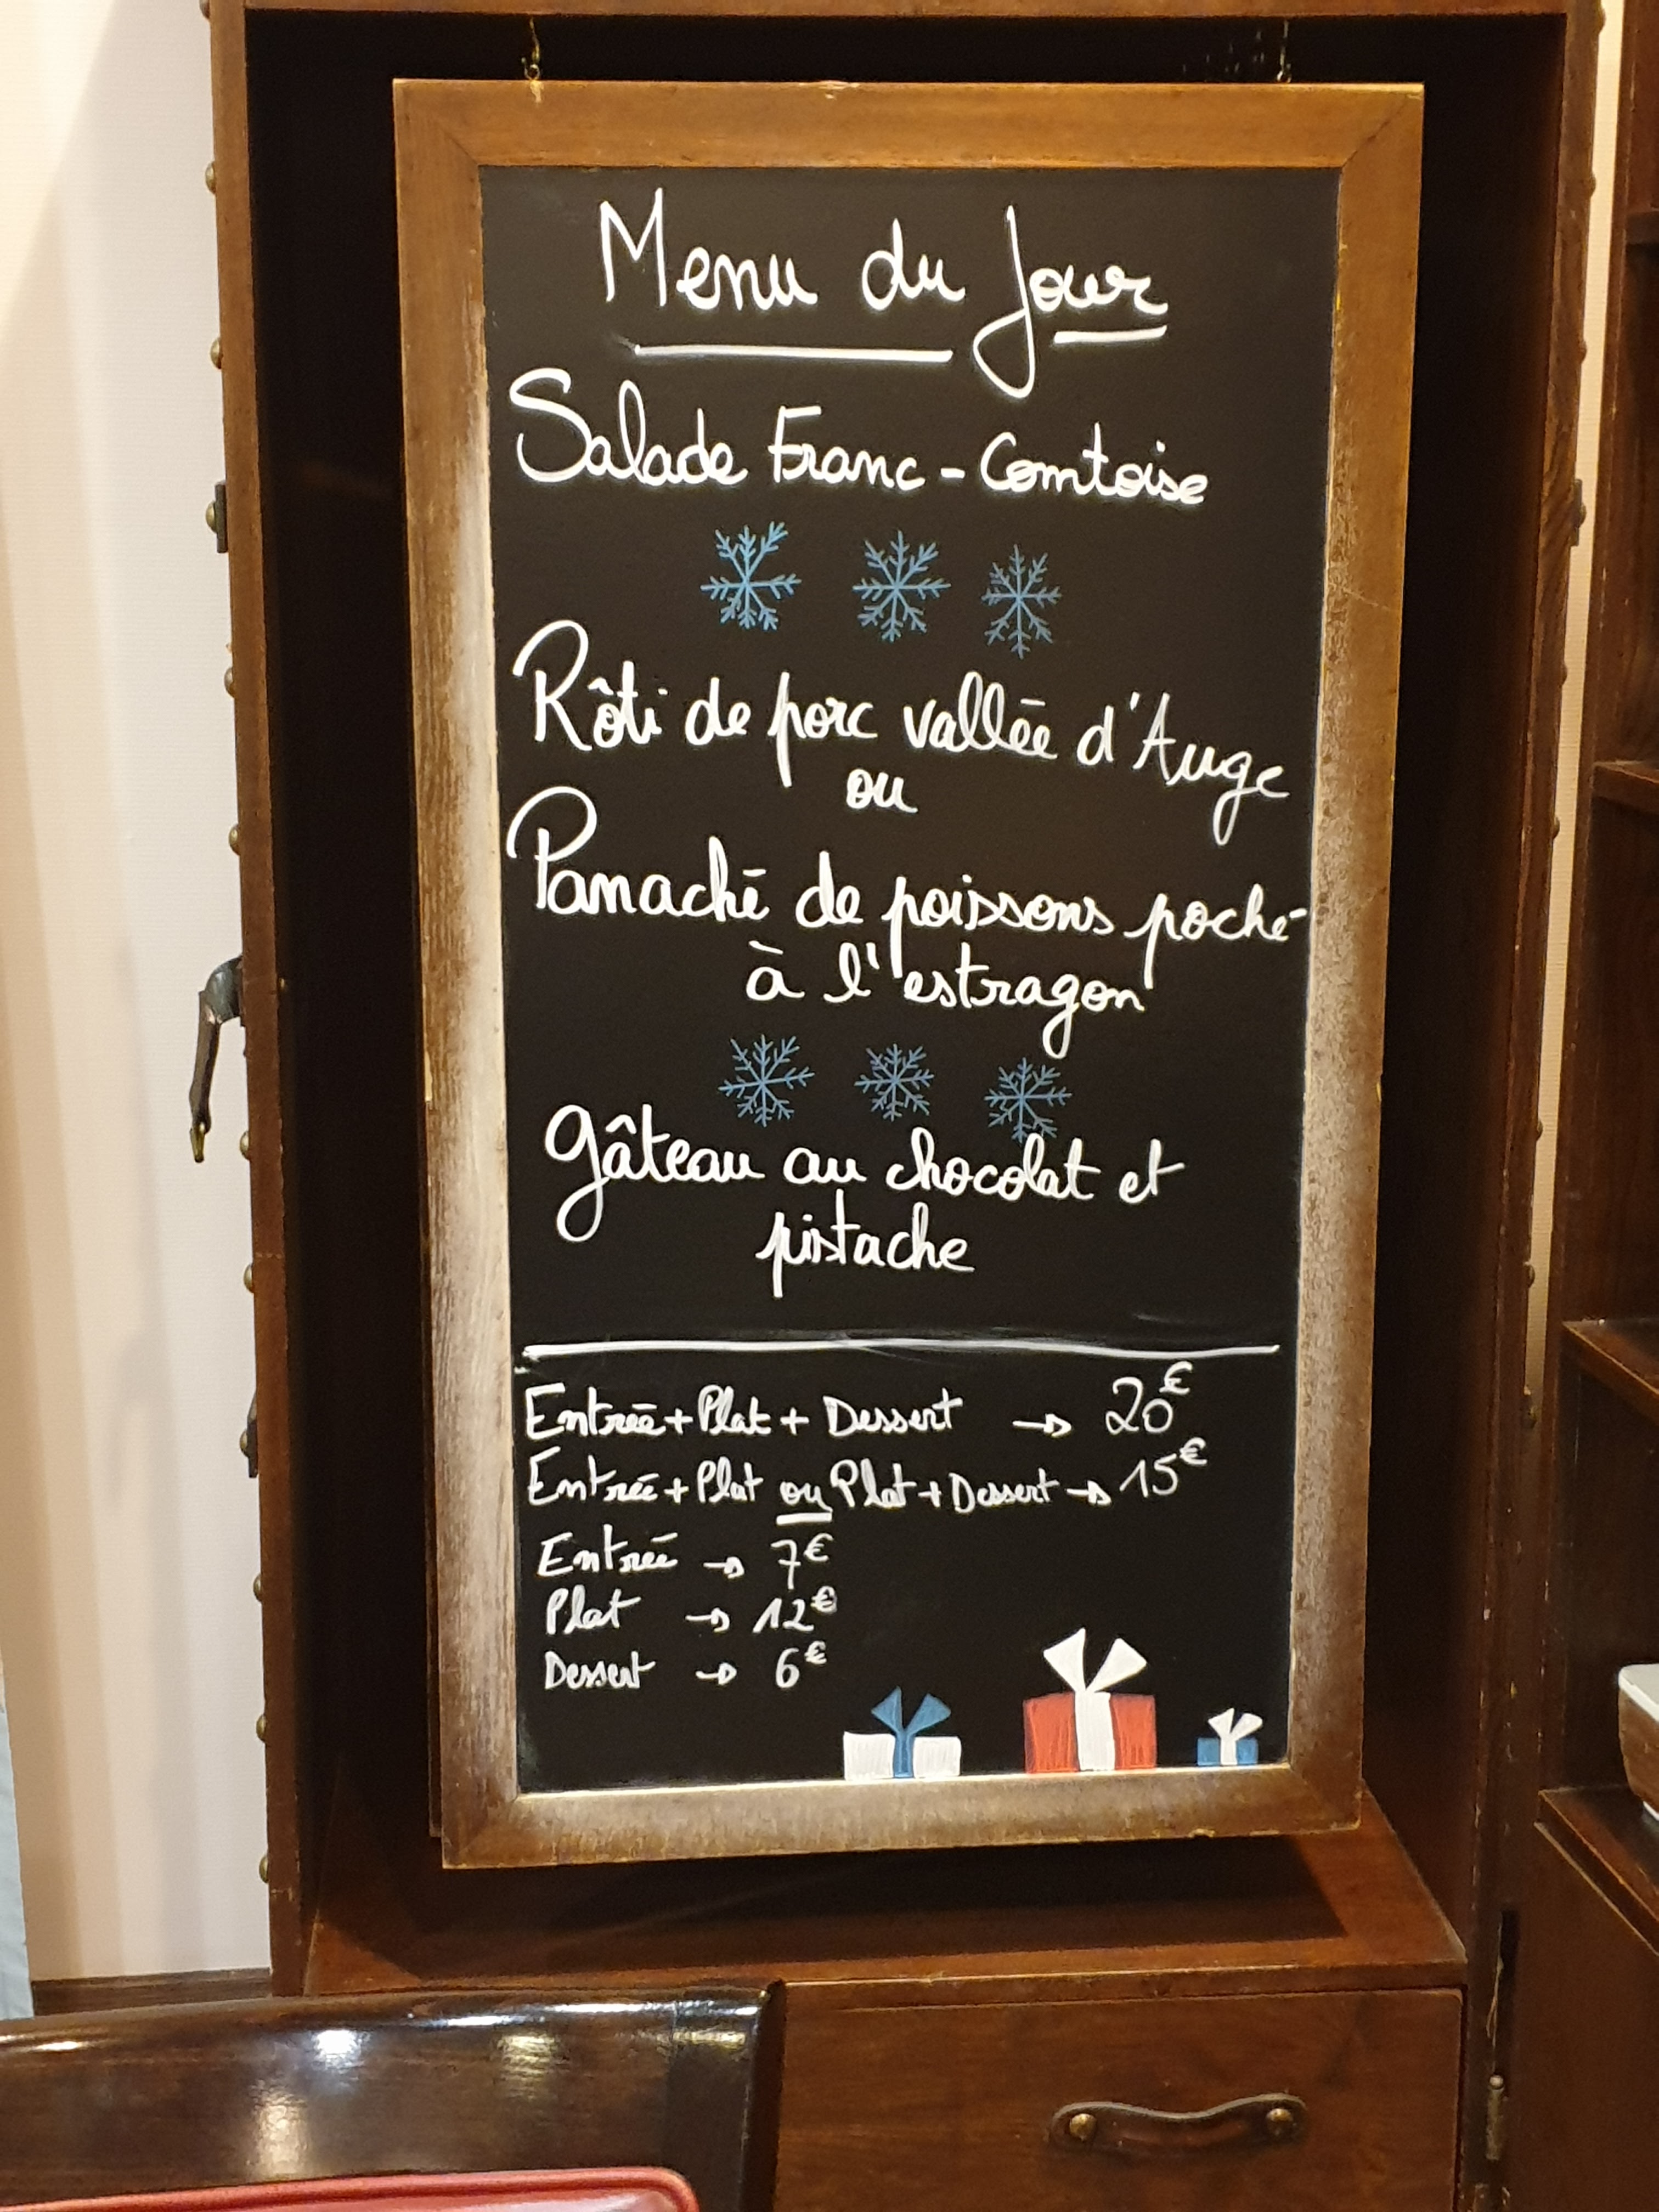 Menu du Jour
Salade Franc-Comtoise
Rôti de porc vallée d'Auge
ou
Panaché de poissons poché
à l'estragon
Gâteau au chocolat et
pistache
Entrée+Plat+Dessert → 20€
Entrée+Plat ou Plat+Dessert → 15€
Entrée → 7€
Plat → 12€
Dessert → 6€